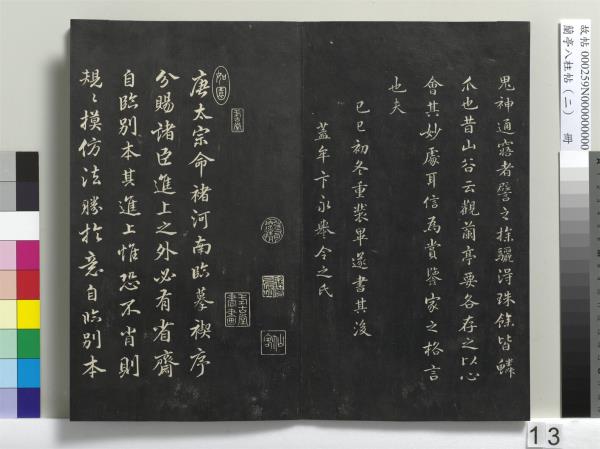 鬼神通竊者譬之採驪得珠餘皆鱗
爪也昔山谷云觀蘭亭要各存之以心
會其妙處耳信為賞鑒家之格言
也夫
己巳初冬重裝畢遂書其後
蓋牟卞永譽令之氏
唐太宗命褚河南臨摹禊序
分賜諸臣進上之外必有省齋
自臨別本其進上惟恐不肖則
規規摸仿法勝於意自臨別本
故帖 000259N000000000
蘭亭八柱帖（二） 冊
13